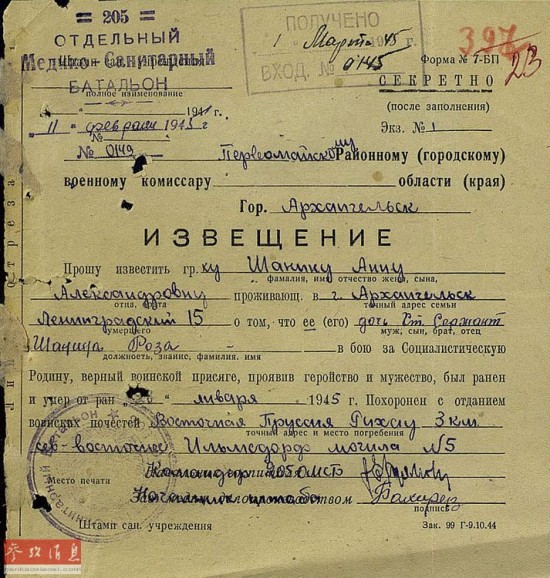 = 205 =
ОТДЕЛЬНЫЙ
Медико-Санитарный
БАТАЛЬОН
полное наименование
ПОЛУЧЕНО
1 Март 1945
ВХОД. № 0145
397
23
Форма № 7-БП
СЕКРЕТНО
(после заполнения)
Экз. № 1
11 февраля 1945 г
№ 0149
Первомайскому Районному (городскому)
военному комиссару области (края)
Гор. Архангельск
ИЗВЕЩЕНИЕ
Прошу известить гр.ку Шанину Анну
фамилия, имя отчество жены, сына,
Александровну проживающ. в г. Архангельск
отца, брата
точный адрес семьи
Ленинградский 15 о том, что ее (его) дочь Ст. Сержант
умершего
муж, сын, брат, отец
Шанина Роза в бою за Социалистическую
должность, звание, фамилия. имя
Родину, верный воинской присяге, проявив геройство и мужество, был ранен
и умер от ран 28 января 1945 г. Похоронен с отданием
воинских почестей Восточная Пруссия Рихау 3 км.
точный адрес и место погребения
сев-восточнее Ильмсдорф могила №5
Командир 205 ОМСБ
Место печати
Начальник штаба
подпись
Штамп сан. учреждения
Зак. 99 Г-9.10.44
参考消息